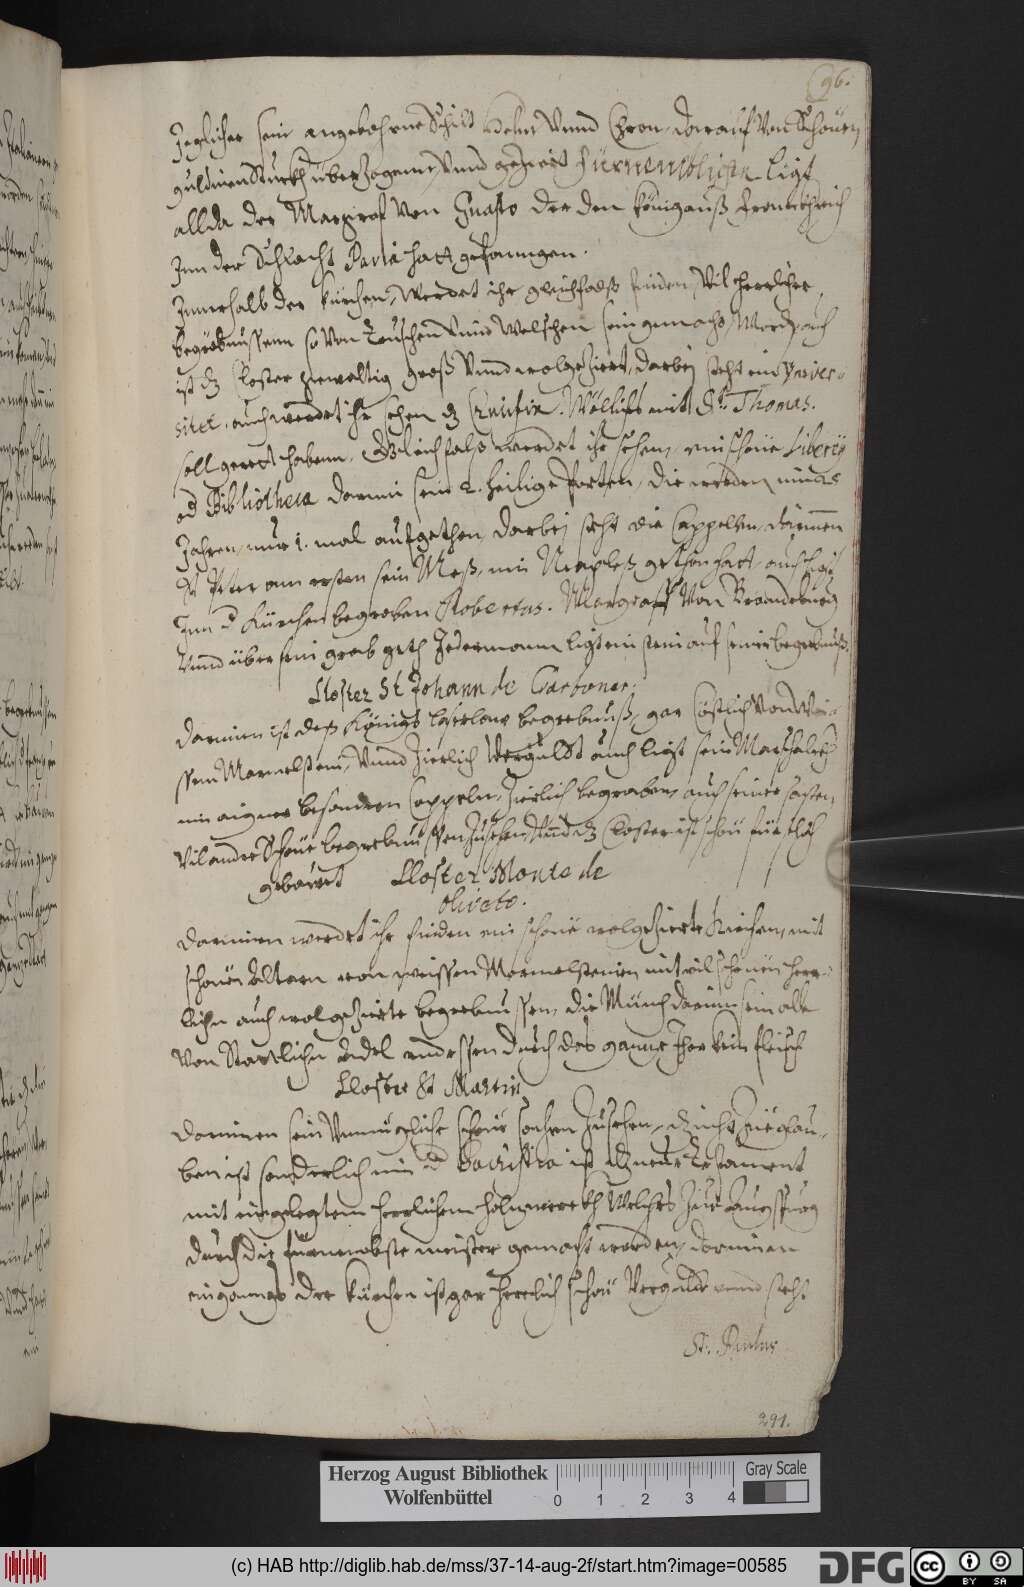 96.
Jeglicher sein angebohrne Schilt Helm Vnnd Chron, darauf von schönen
guldinen Stuckh überzogenn, Vnnd geziert fürnemblichen ligt
allda der Marggraf Von Guasto der den König auß Franckhreich
Inn der Schlacht Pavia hatt gefanngen.
Innerhalb der Kürchen, Werdet ihr gleichfalß finden, Vil herrliche
begrebnussenn so von Teutschen Vnnd Welschen sein gemacht Word, auch
ist dz Closter gewaltig groß Vnnd wolgeziert, darbej steht ein Vniver-
sitet, auch werdet ihr sehen dz Crucifix. Wöllichs mit St: Thomas.
soll geredt habenn. Gleichfalß werdet ihr sehen, ein schöne Liberey
od Bibliotheca darinn sein 2. heilige Porten, die werden inn
Jahren, nur 1. mal aufgethon, darbej steht die Cappellen, darinnen
St Peter am ersten sein Meß, inn Neapleß gethon hatt, auch ligt
Inn d Kürchen begraben Robertus. Marggraff Von Brandeburg
Vnnd über sein grab geth Jedermann ligt ein stein auf seiner begrebnuß.
Closter St Johann de Carboner.
Darinnen ist deß Königs begrebnuß, gar Cöstlich von Wei-
ssem Marmelstein, Vnnd Zierlich Vergüldt auch ligt sein Marschalckh
inn aigner besondern Cappeln, Zierlich begraben, auch seines
Vil andre Schöne begrebnussen Zusehen, Vnnd dz Closter ist schön
gebawet Closter Monte de
Oliveto.
Darinnen werdet ihr finden ein schöne wolgezierte Kirchen, mit
schönen Altarn von weissen Marmelsteinen mit vil schönen herr-
lichen auch wolgezierte begrebnussen, die Münch darinn sein alle
Von Stattlichen Adel Vnd essen durch das gantze Jhar kein fleisch
Closter St Martin
Darinnen sein Vnmügliche schöne sachen Zusehen, dz nicht Zu glau-
ben ist sonderlich inn d Sacristia ist dz neue Testament
mit eingelegtem herrlichem holtzwerckh Welches Zu Augspurg
durch die fürnembste meister gemacht worden, darinnen
eingangs der Kürchen ist gar herrlich schön Vergüldt vnnd steht
St. Paulus
291.
Herzog August Bibliothek
Wolfenbüttel
0 1 2 3 4
Gray Scale
(c) HAB http://diglib.hab.de/mss/37-14-aug-2f/start.htm?image=00585
DFG
cc BY SA